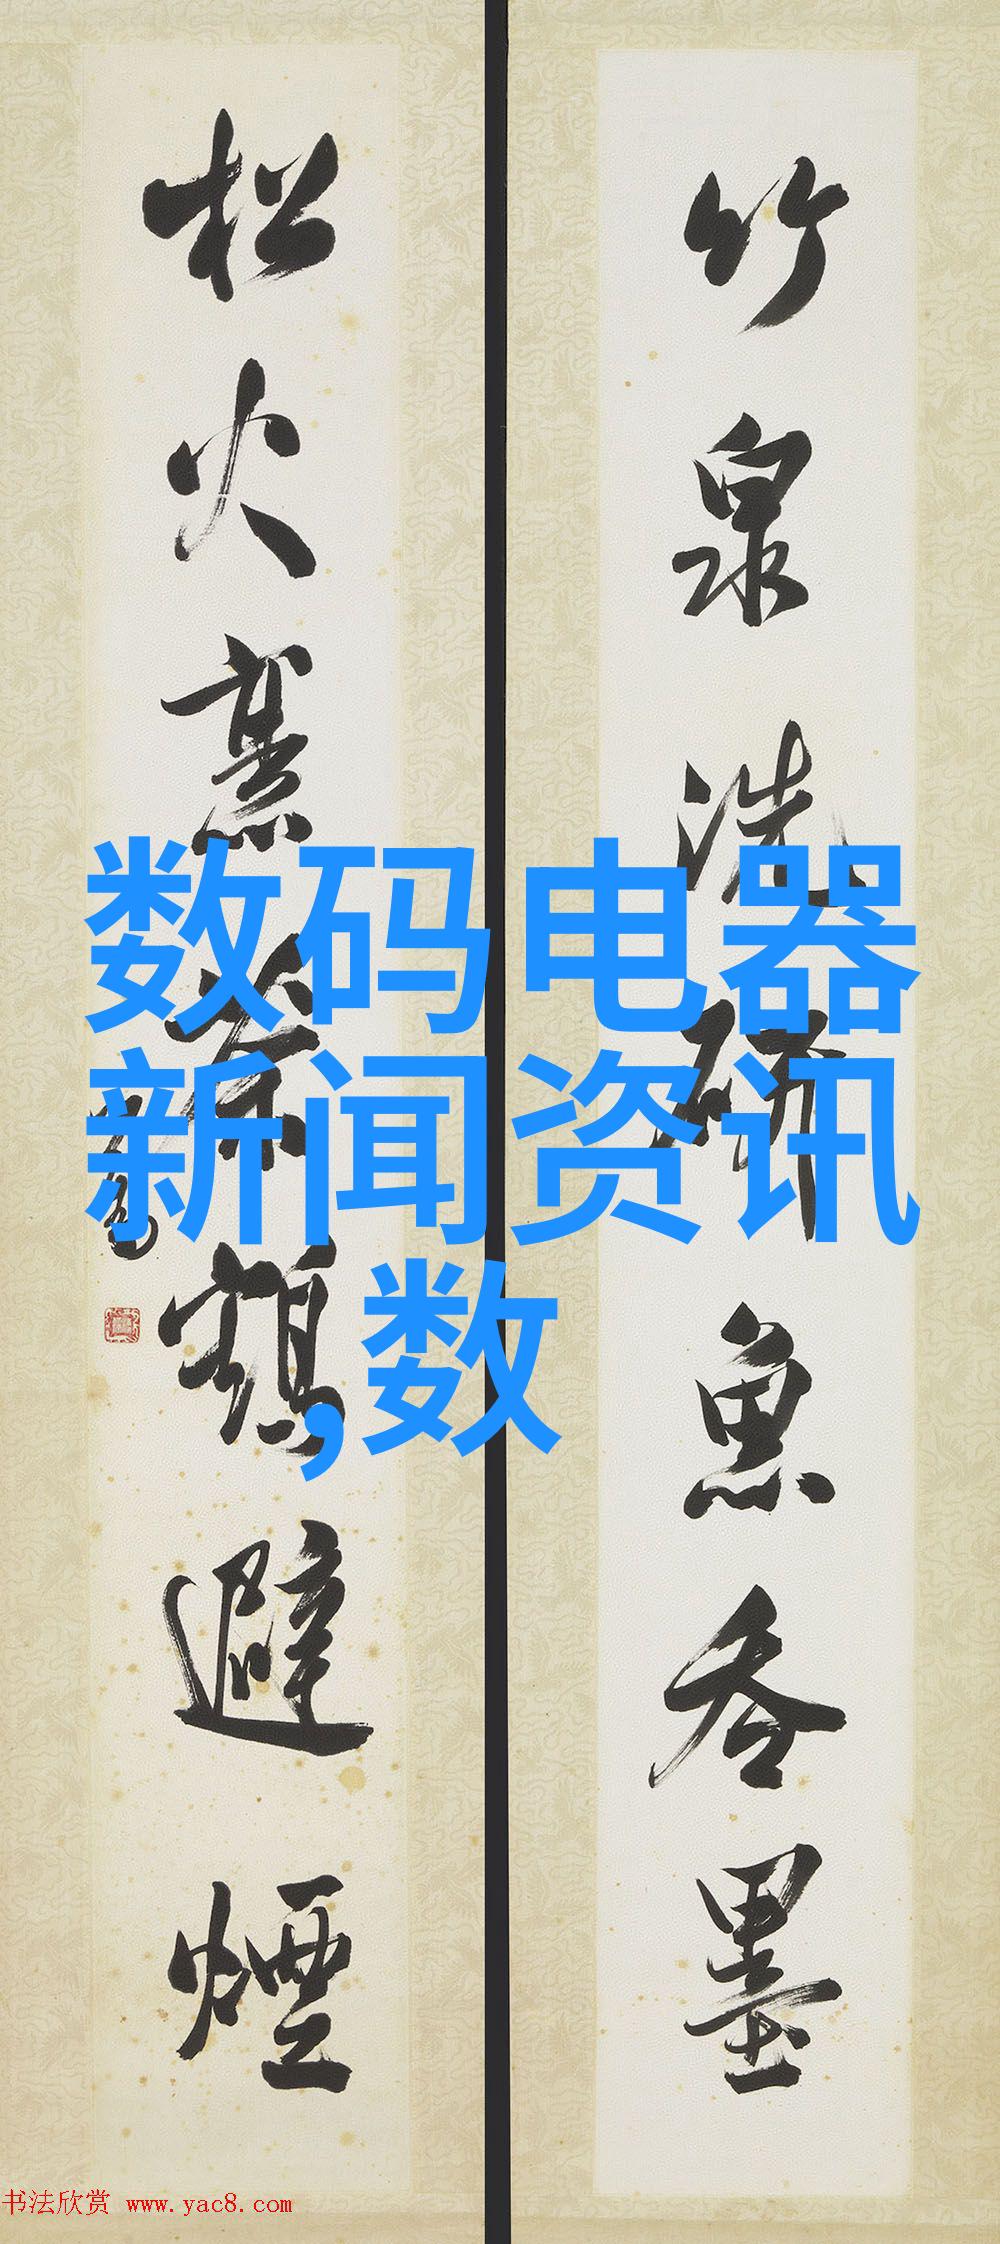 竹泉洗研魚吞墨
松火烹茶鶴避煙
数码电器
新闻资讯
,数
书法欣赏 www.yac8.com